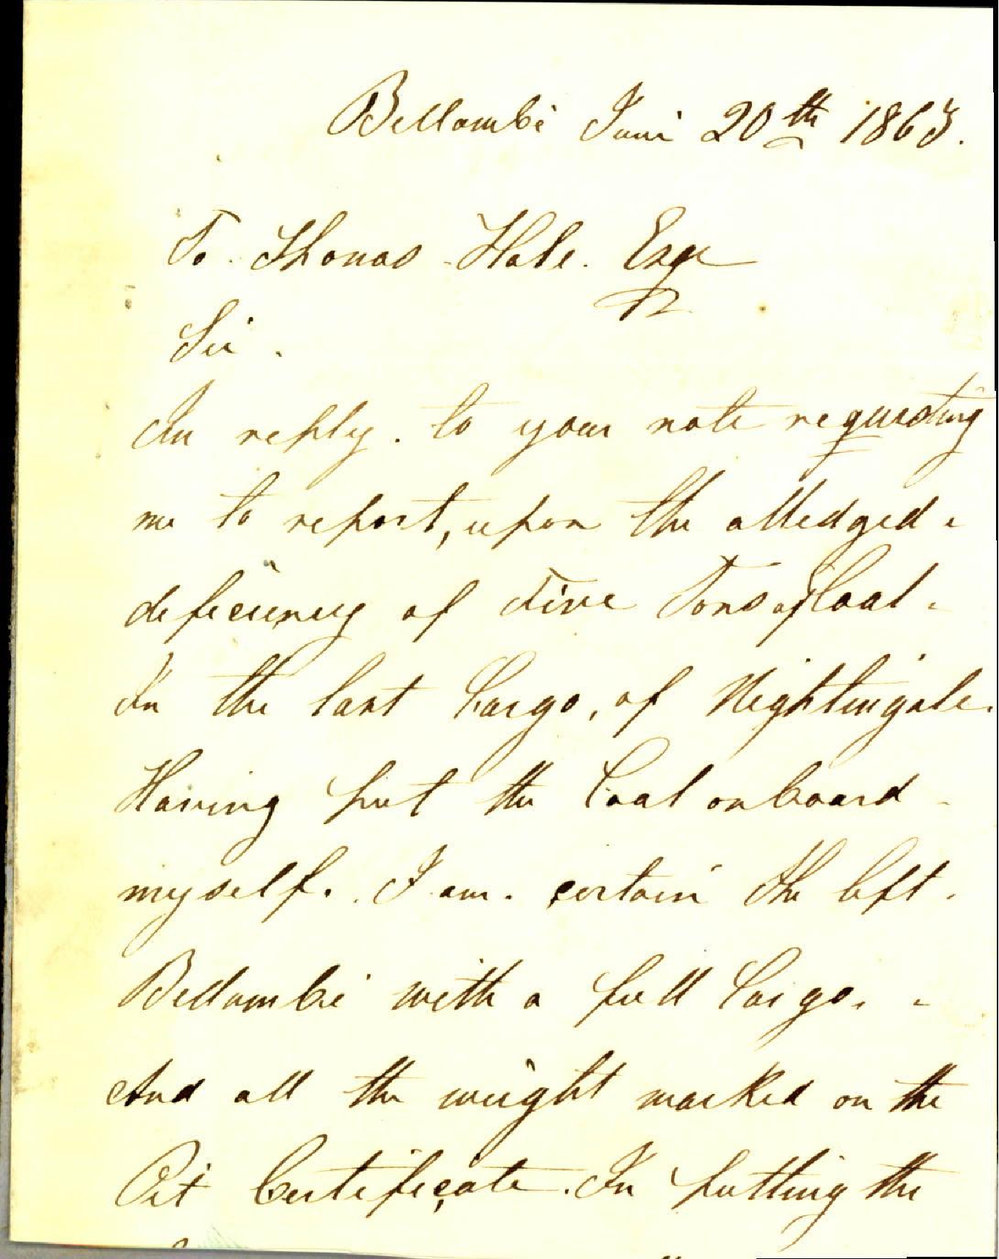 Bellambi June 20th 1863.
To Thomas Hale. Esqr
Sir.
In reply. to your note requesting
me to report, upon the alledged
deficiency of Five Tons of Coal.
In the last Cargo, of Nightingale.
Having put the Coal on board
myself. I am. certain She left.
Bellambi with a full Cargo.
And all the weight marked on the
Pit Certificate. In putting the